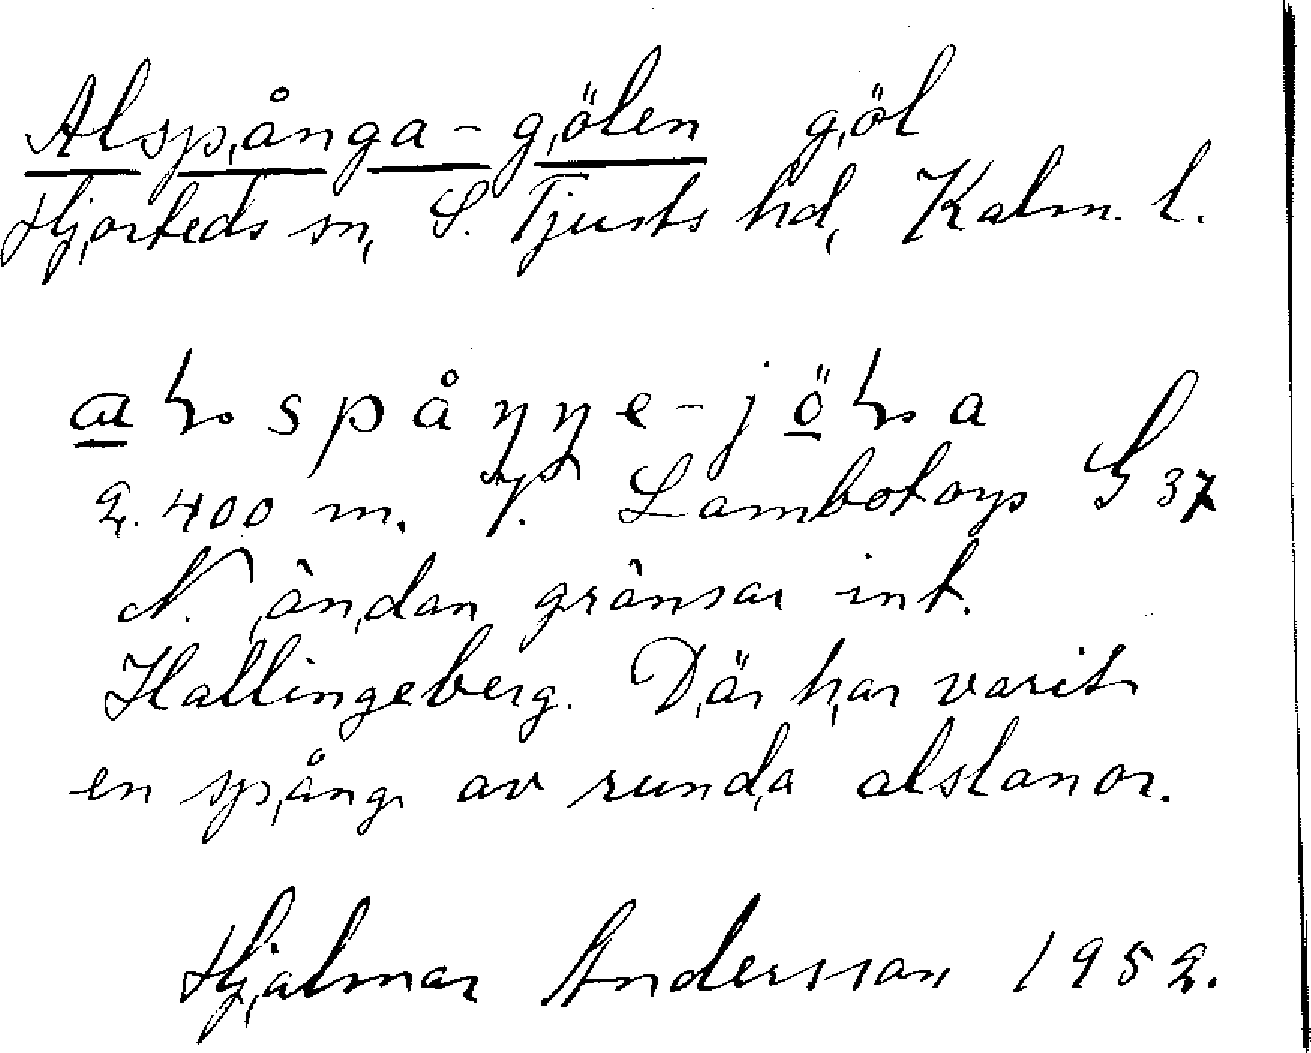 Alspånga-gölen göl
Hjorteds sn, S. Tjusts hd, Kalm. l.
spåŋŋe-j
2.400 m. V. Lambotorp S 37
N. ändan gränsar int.
Hallingeberg. Där har varit
en spång av runda alslanor.
Hjalmar Andersson 1952.